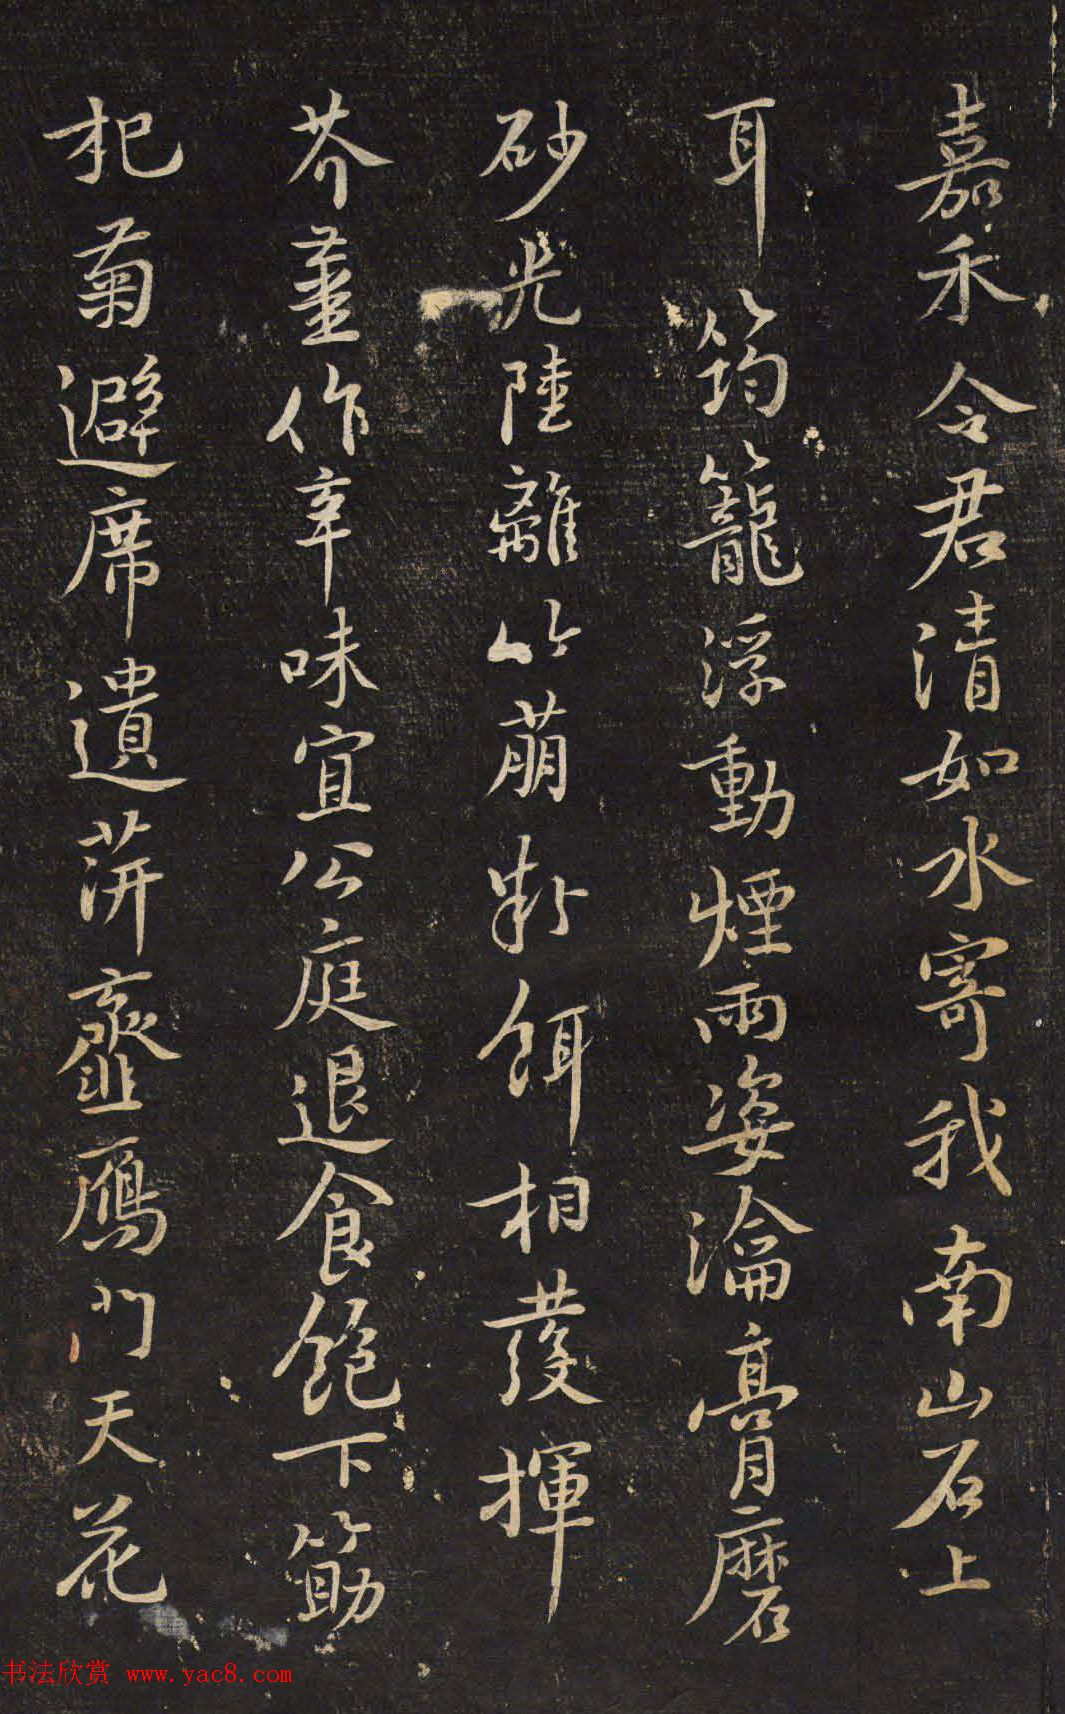 嘉禾令君清如水寄我南山石上
耳筠籠浮動煙雨姿瀹膏磨
砂光陸離竹萌粉餌相發揮
芥薑作辛味宜公庭退食飽下筯
杞菊避席遺萍虀鴈門天花
书法欣赏 www.yac8.com